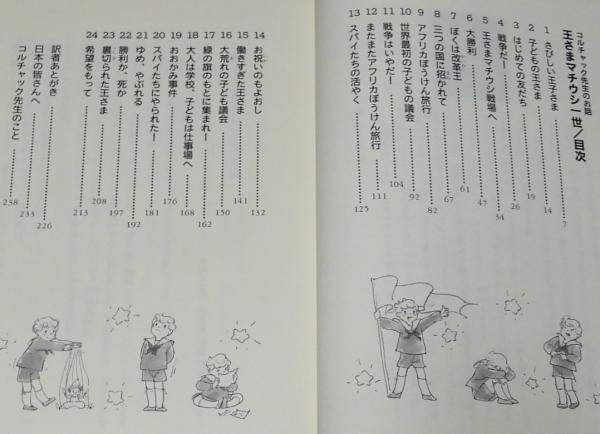 コルチャック先生のお話
王さまマチウシ一世/目次
1 さびしい王子さま 7
2 子どもの王さま 14
3 はじめての友だち 19
4 戦争だー 26
5 王さまマチウシ戦場へ 34
6 大勝利 47
7 ぼくは改革王 61
8 三つの国に招かれて 67
9 アフリカぼうけん旅行 82
10 世界最初の子どもの議会 92
11 戦争はいやだー 104
12 またまたアフリカぼうけん旅行 111
13 スパイたちの活やく 125
14 お祝いのもよおし 132
15 働きすぎた王さま 141
16 大荒れの子ども議会 150
17 緑の旗のもとに集まれー 162
18 大人は学校、子どもは仕事場へ 168
19 おおかみ事件 176
20 スパイたちにやられた! 181
21 ゆめ、やぶれる 192
22 勝利か、死か 197
23 裏切られた王さま 208
24 希望をもって 213
訳者あとがき 226
日本の皆さんへ 233
コルチャック先生のこと 238